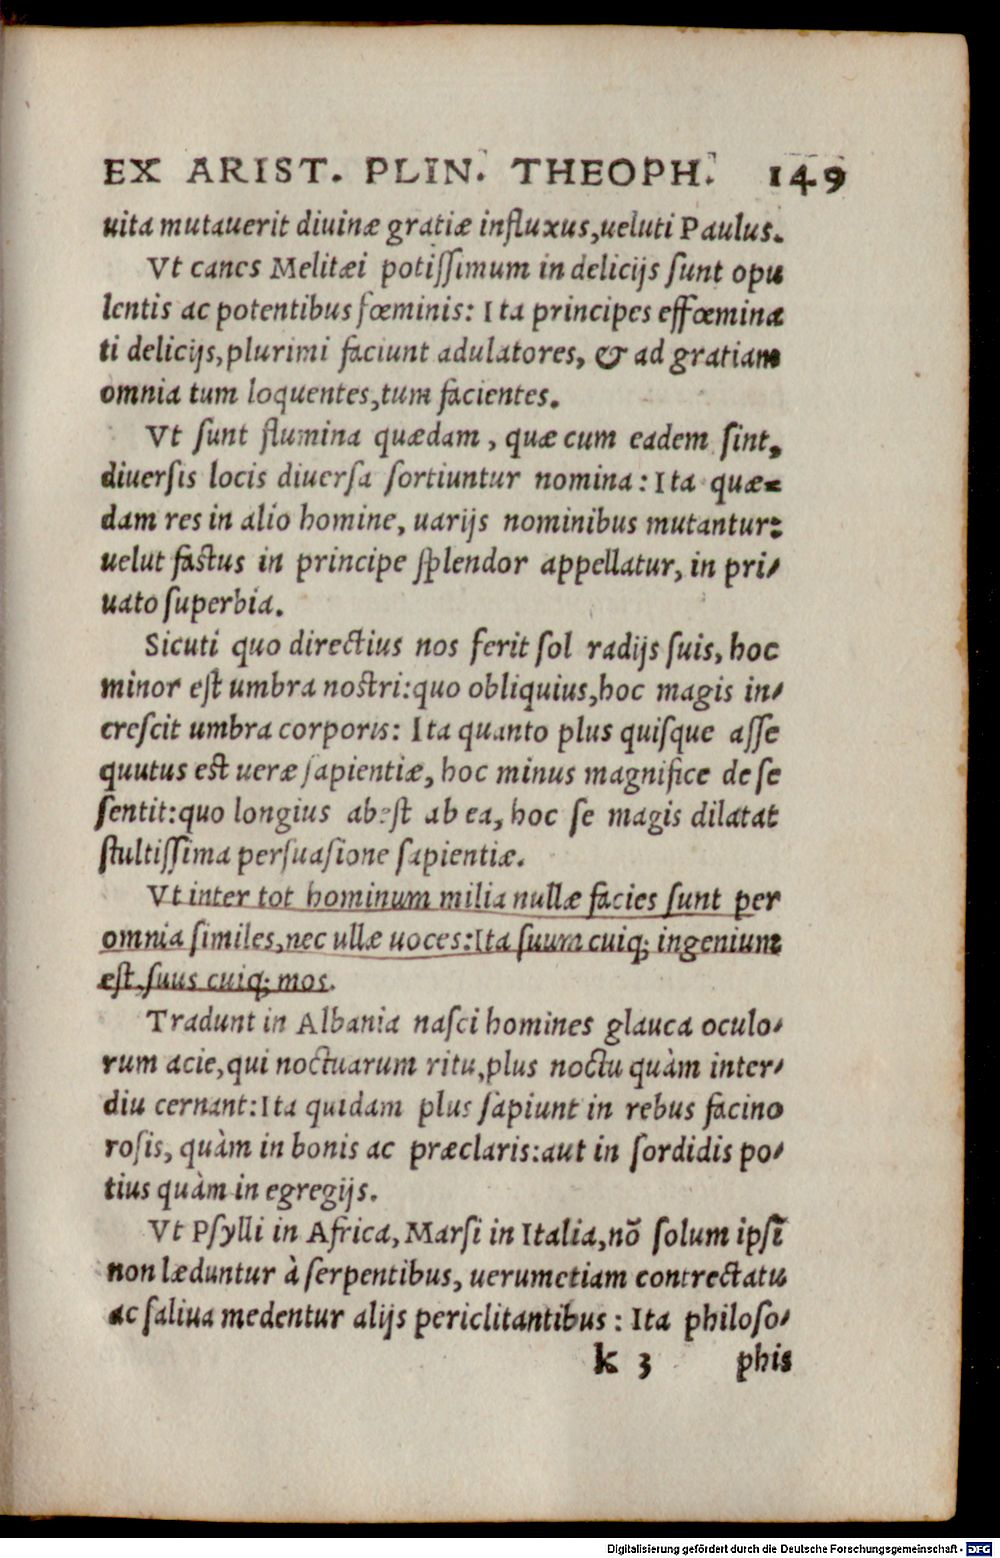 EX ARIST. PLIN. THEOPH. 149
uita mutauerit diuinæ gratiæ influxus,ueluti Paulus.
Vt canes Melitæi potißimum in delicijs sunt opu
lentis ac potentibus fœminis: Ita principes effœmina
ti delicijs,plurimi faciunt adulatores, & ad gratiam
omnia tum loquentes,tum facientes.
Vt sunt flumina quædam, quæ cum eadem sint,
diuersis locis diuersa sortiuntur nomina: Ita quæ-
dam res in alio homine, uarijs nominibus mutantur:
uelut fastus in principe splendor appellatur, in pri-
uato superbia.
Sicuti quo directius nos ferit sol radijs suis, hoc
minor est umbra nostri:quo obliquius,hoc magis in-
crescit umbra corporis: Ita quanto plus quisque asse
quutus est ueræ sapientiæ, hoc minus magnifice de se
sentit:quo longius abest ab ea, hoc se magis dilatat
stultißima persuasione sapientiæ.
Vt inter tot hominum milia nullæ facies sunt per
omnia similes,nec ullæ uoces:Ita suum cuiq; ingenium
est,suus cuiq; mos.
Tradunt in Albania nasci homines glauca oculo-
rum acie,qui noctuarum ritu,plus noctu quàm inter-
diu cernant:Ita quidam plus sapiunt in rebus facino
rosis, quàm in bonis ac præclaris:aut in sordidis po-
tius quàm in egregijs.
Vt Psylli in Africa, Marsi in Italia,nõ solum ipsĩ
non læduntur à serpentibus, uerumetiam contrectatu
ac saliua medentur alijs periclitantibus : Ita philoso-
k 3 phis
Digitalisierung gefördert durch die Deutsche Forschungsgemeinschaft - DFG